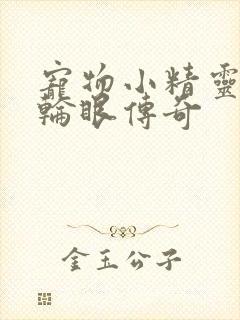 寵物小精靈
輪眼傳奇
金玉公子